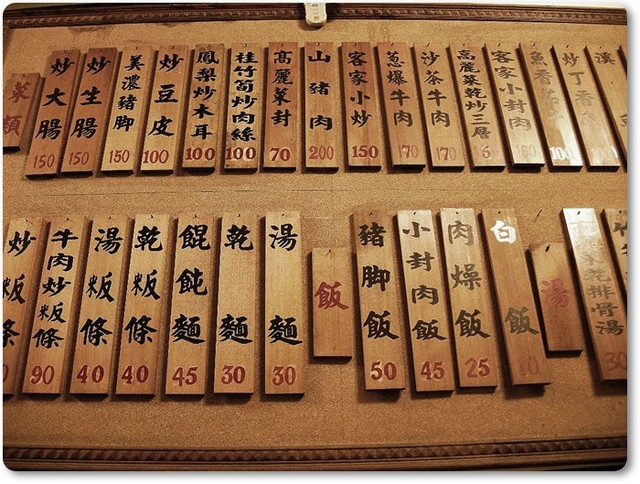 菜類
炒大腸 150
炒生腸 150
美濃豬脚 150
炒豆皮 100
鳳梨炒木耳 100
桂竹筍炒肉絲 100
高麗菜封 70
山豬肉 200
客家小炒 150
蔥爆牛肉 170
沙茶牛肉 170
高麗菜乾炒三層
客家小封肉
魚香茄子 100
炒丁香 100
溪
炒粄條
牛肉炒粄條 90
湯粄條 40
乾粄條 40
餛飩麵 45
乾麵 30
湯麵 30
飯
豬脚飯 50
小封肉飯 45
肉燥飯 25
白飯 10
湯
菜乾排骨湯 30